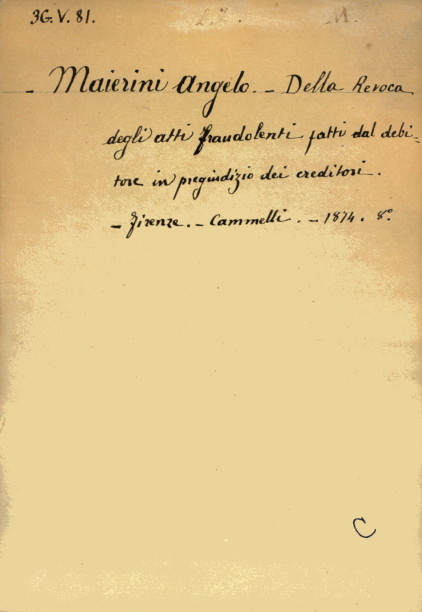 36.V.81. M.
- Maierini Angelo. - Della Revoca
degli atti fraudolenti fatti dal debi-
tore in pregiudizio dei creditori.
- Firenze. - Cammelli. - 1874. 8°.
C